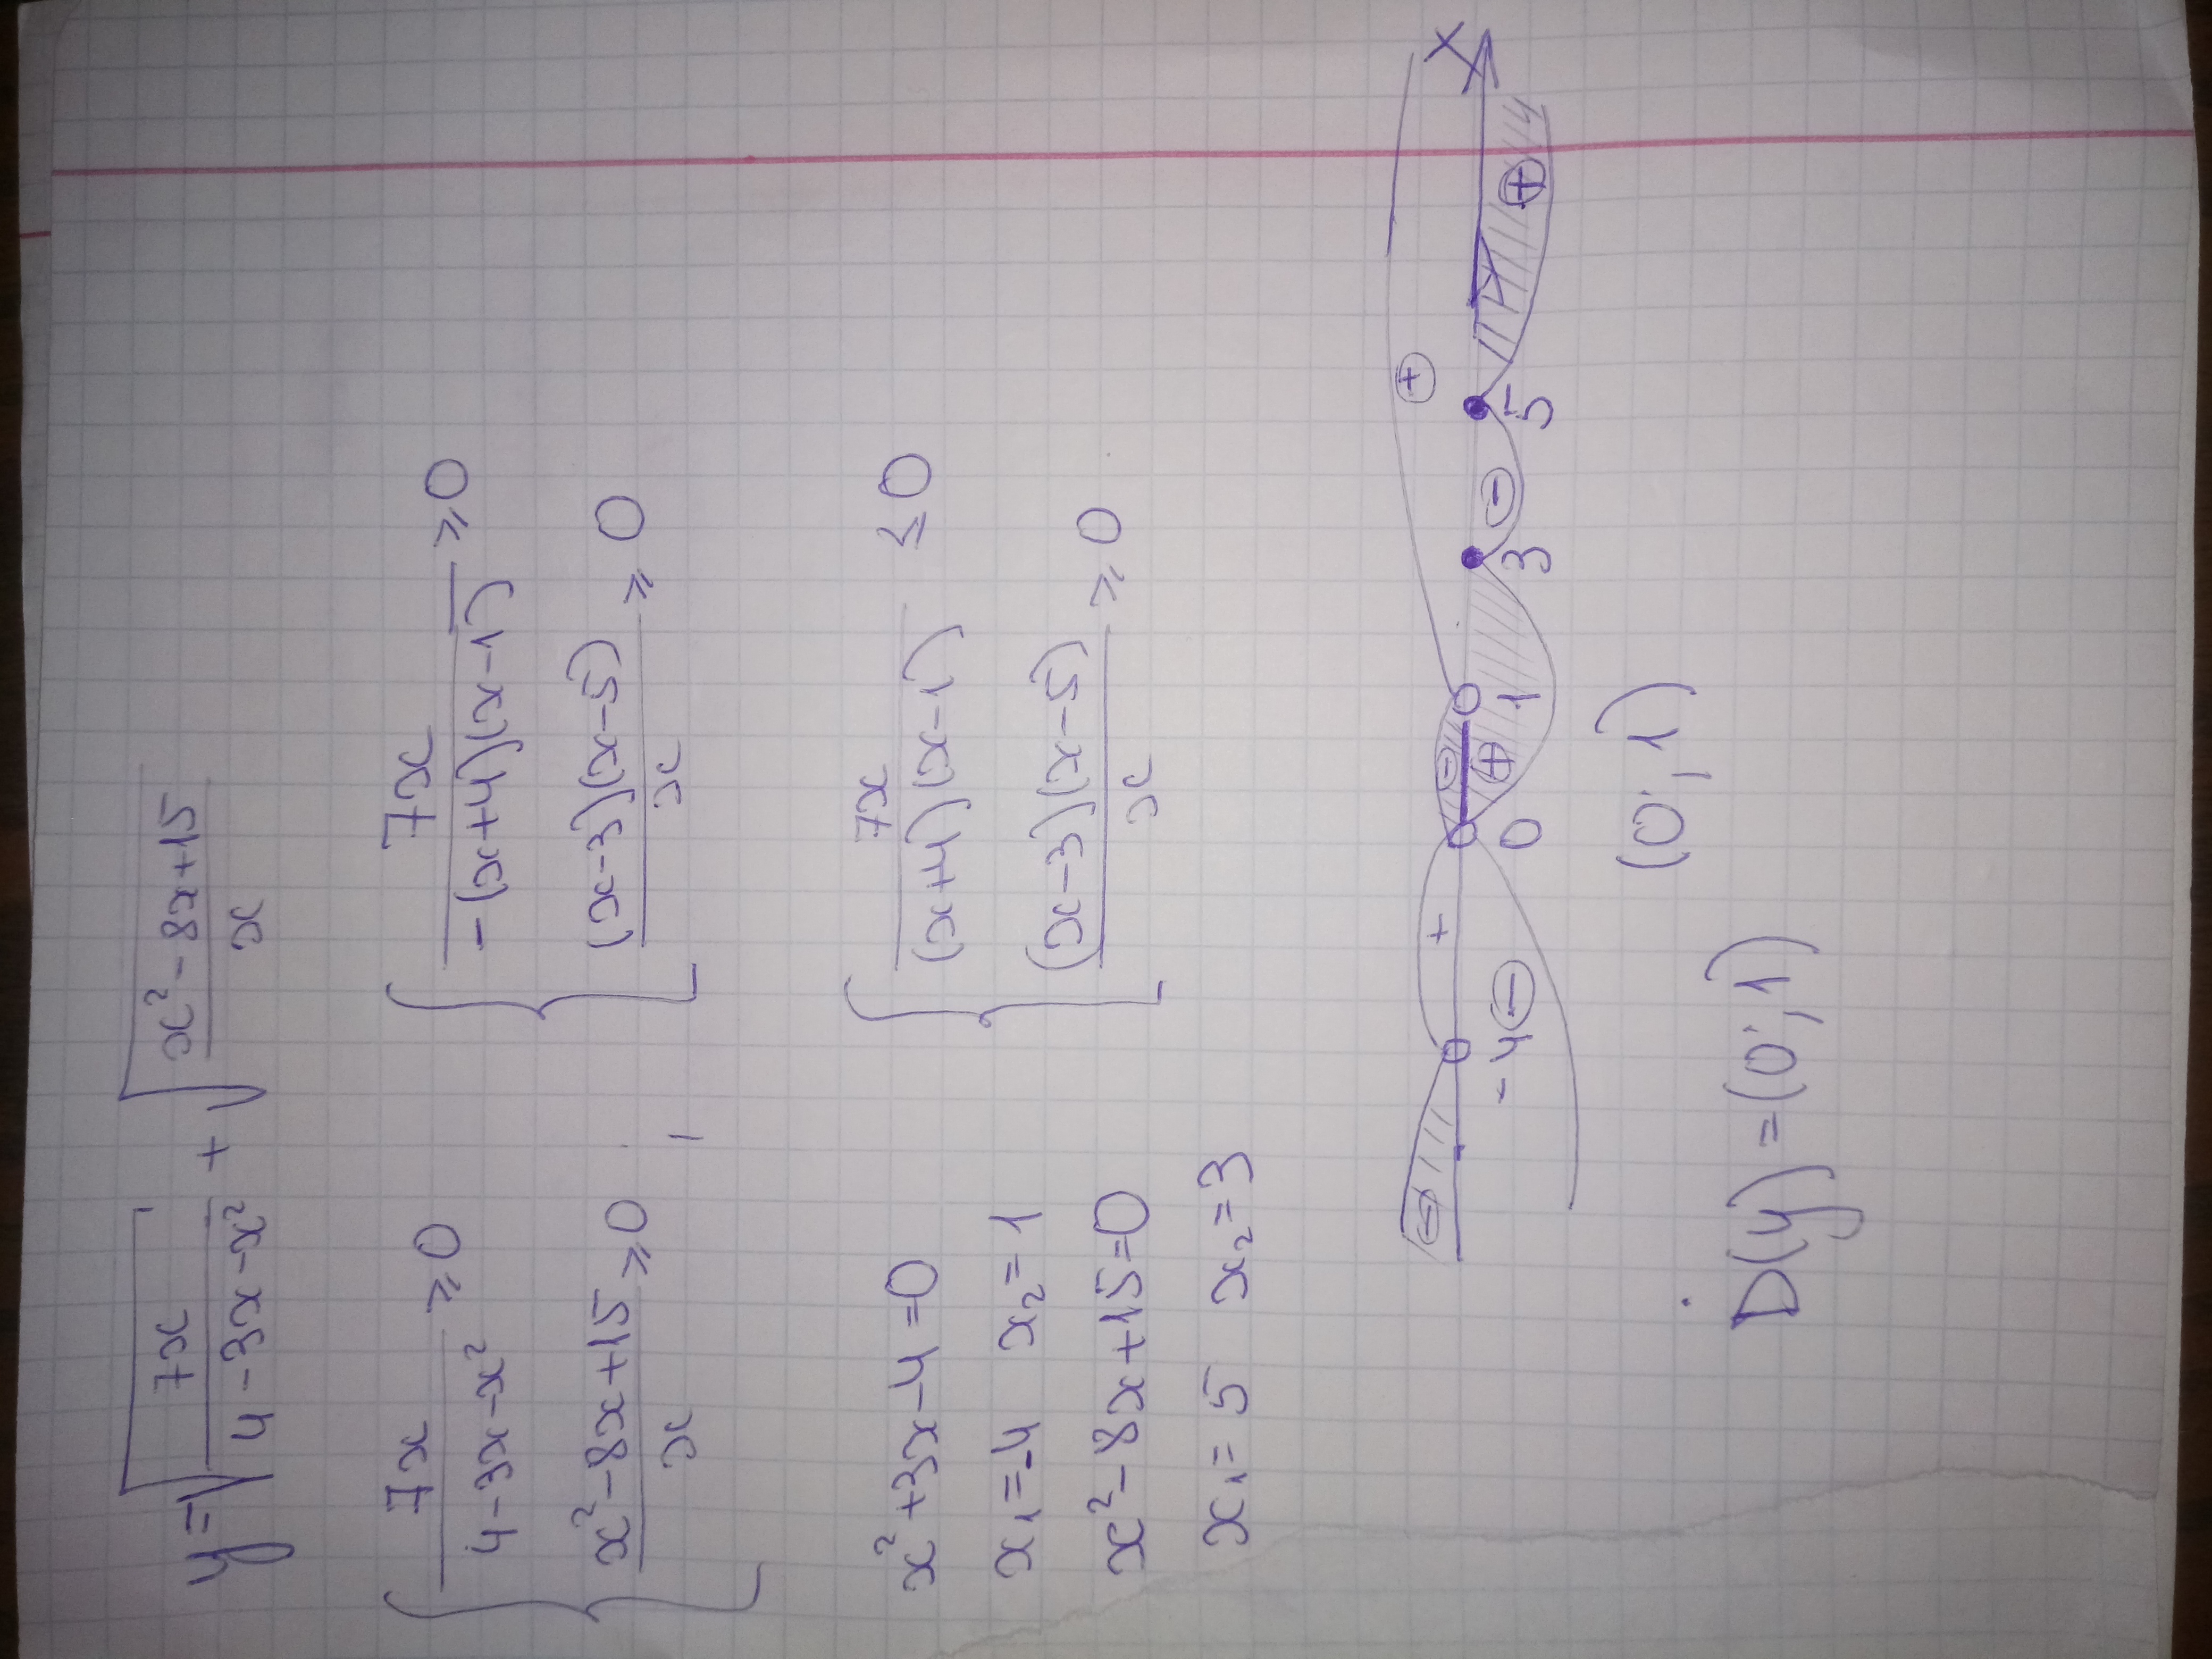 y=√(7x/(4-3x-x²)) + √((x²-8x+15)/x)
{ 7x/(4-3x-x²) ≥0
(x²-8x+15)/x ≥0
{ 7x/(-(x+4)(x-1)) ≥0
(x-3)(x-5)/x ≥ 0
x²+3x-4=0
x₁=-4 x₂=1
x²-8x+15=0
x₁=5 x₂=3
{ 7x/((x+4)(x-1)) ≤0
(x-3)(x-5)/x ≥0
- + - +
-4 0 1 3 5 X
- + - +
(0;1)
D(y)=(0;1)